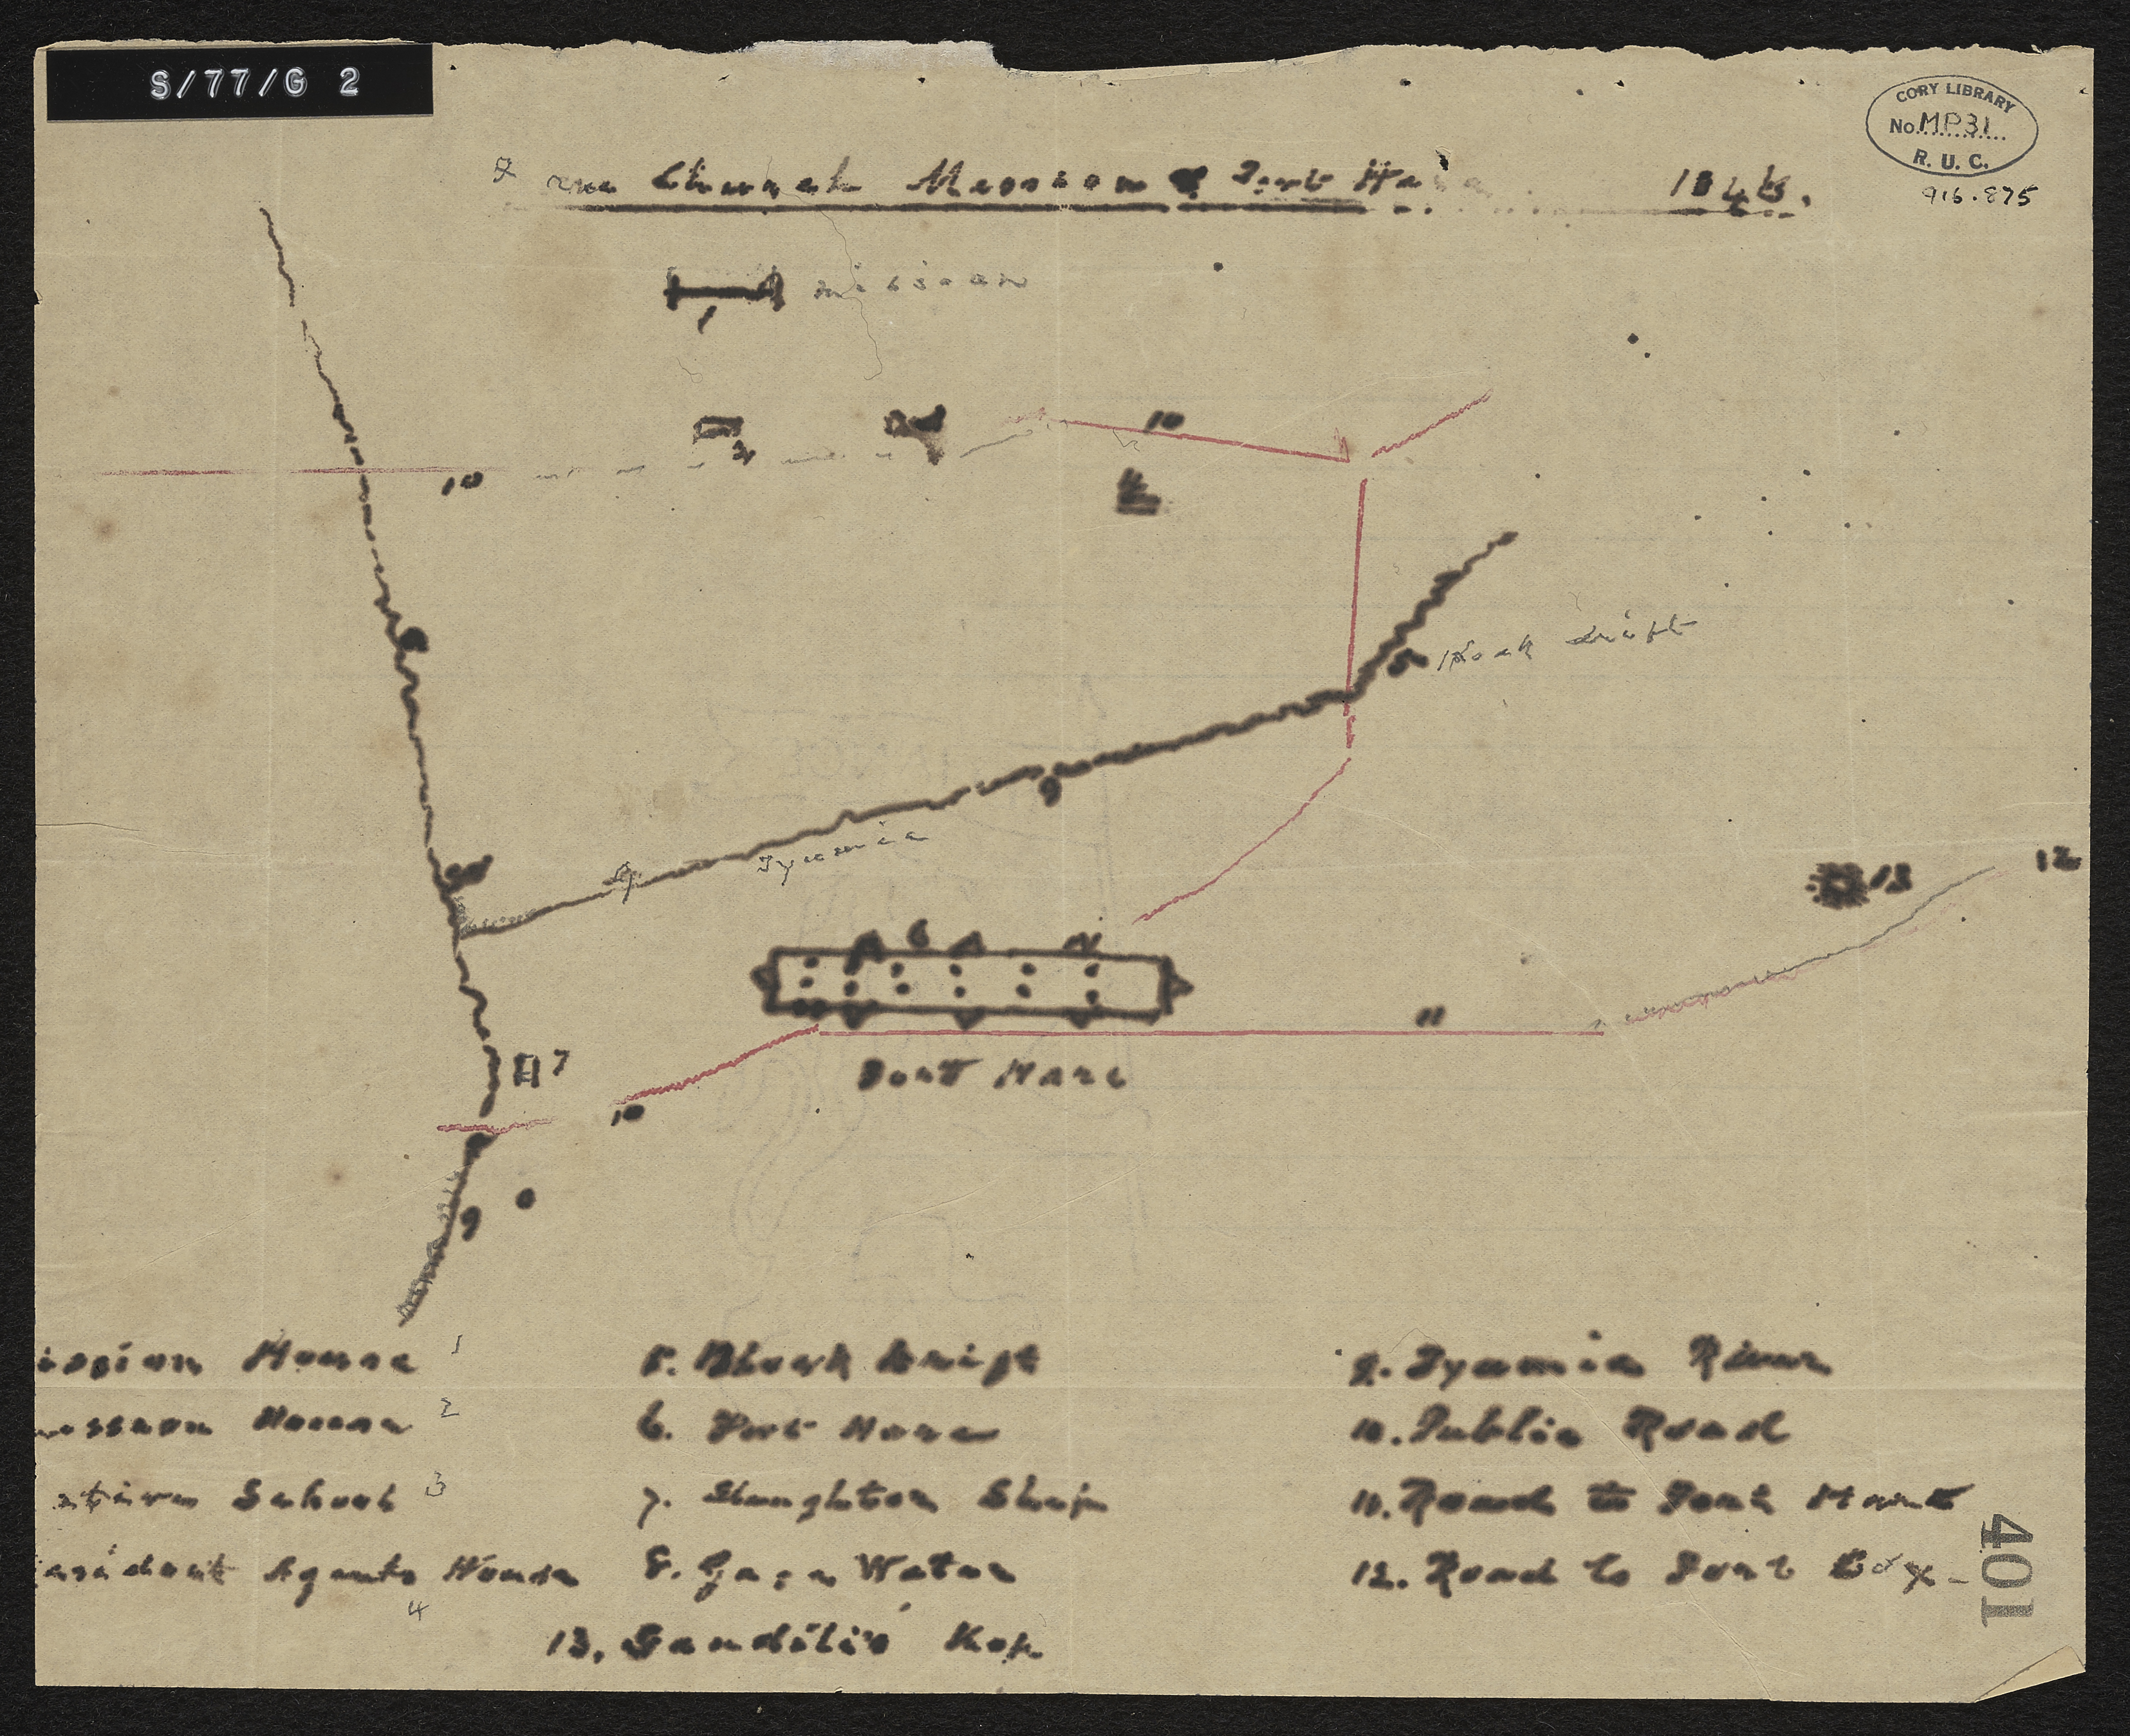 S/77/G 2
CORY LIBRARY
No. MP31
R. U. C.
916.875
Church Mission Fort Ha
mission
1
2
10
10
4
5 Block drift
9
9
Tyumie
13
12
6
11
7
Fort Hare
10
9
ission House 1
ission House 2
ative School 3
esident Agents House
4
5. Block Drift
6. Fort Hare
7. Slaughter Shop
8. Gaga Water
9. Tyumie River
10. Public Road
11. Road to Fort
12. Road to Fort Cox
13. Sandili's Kop
401